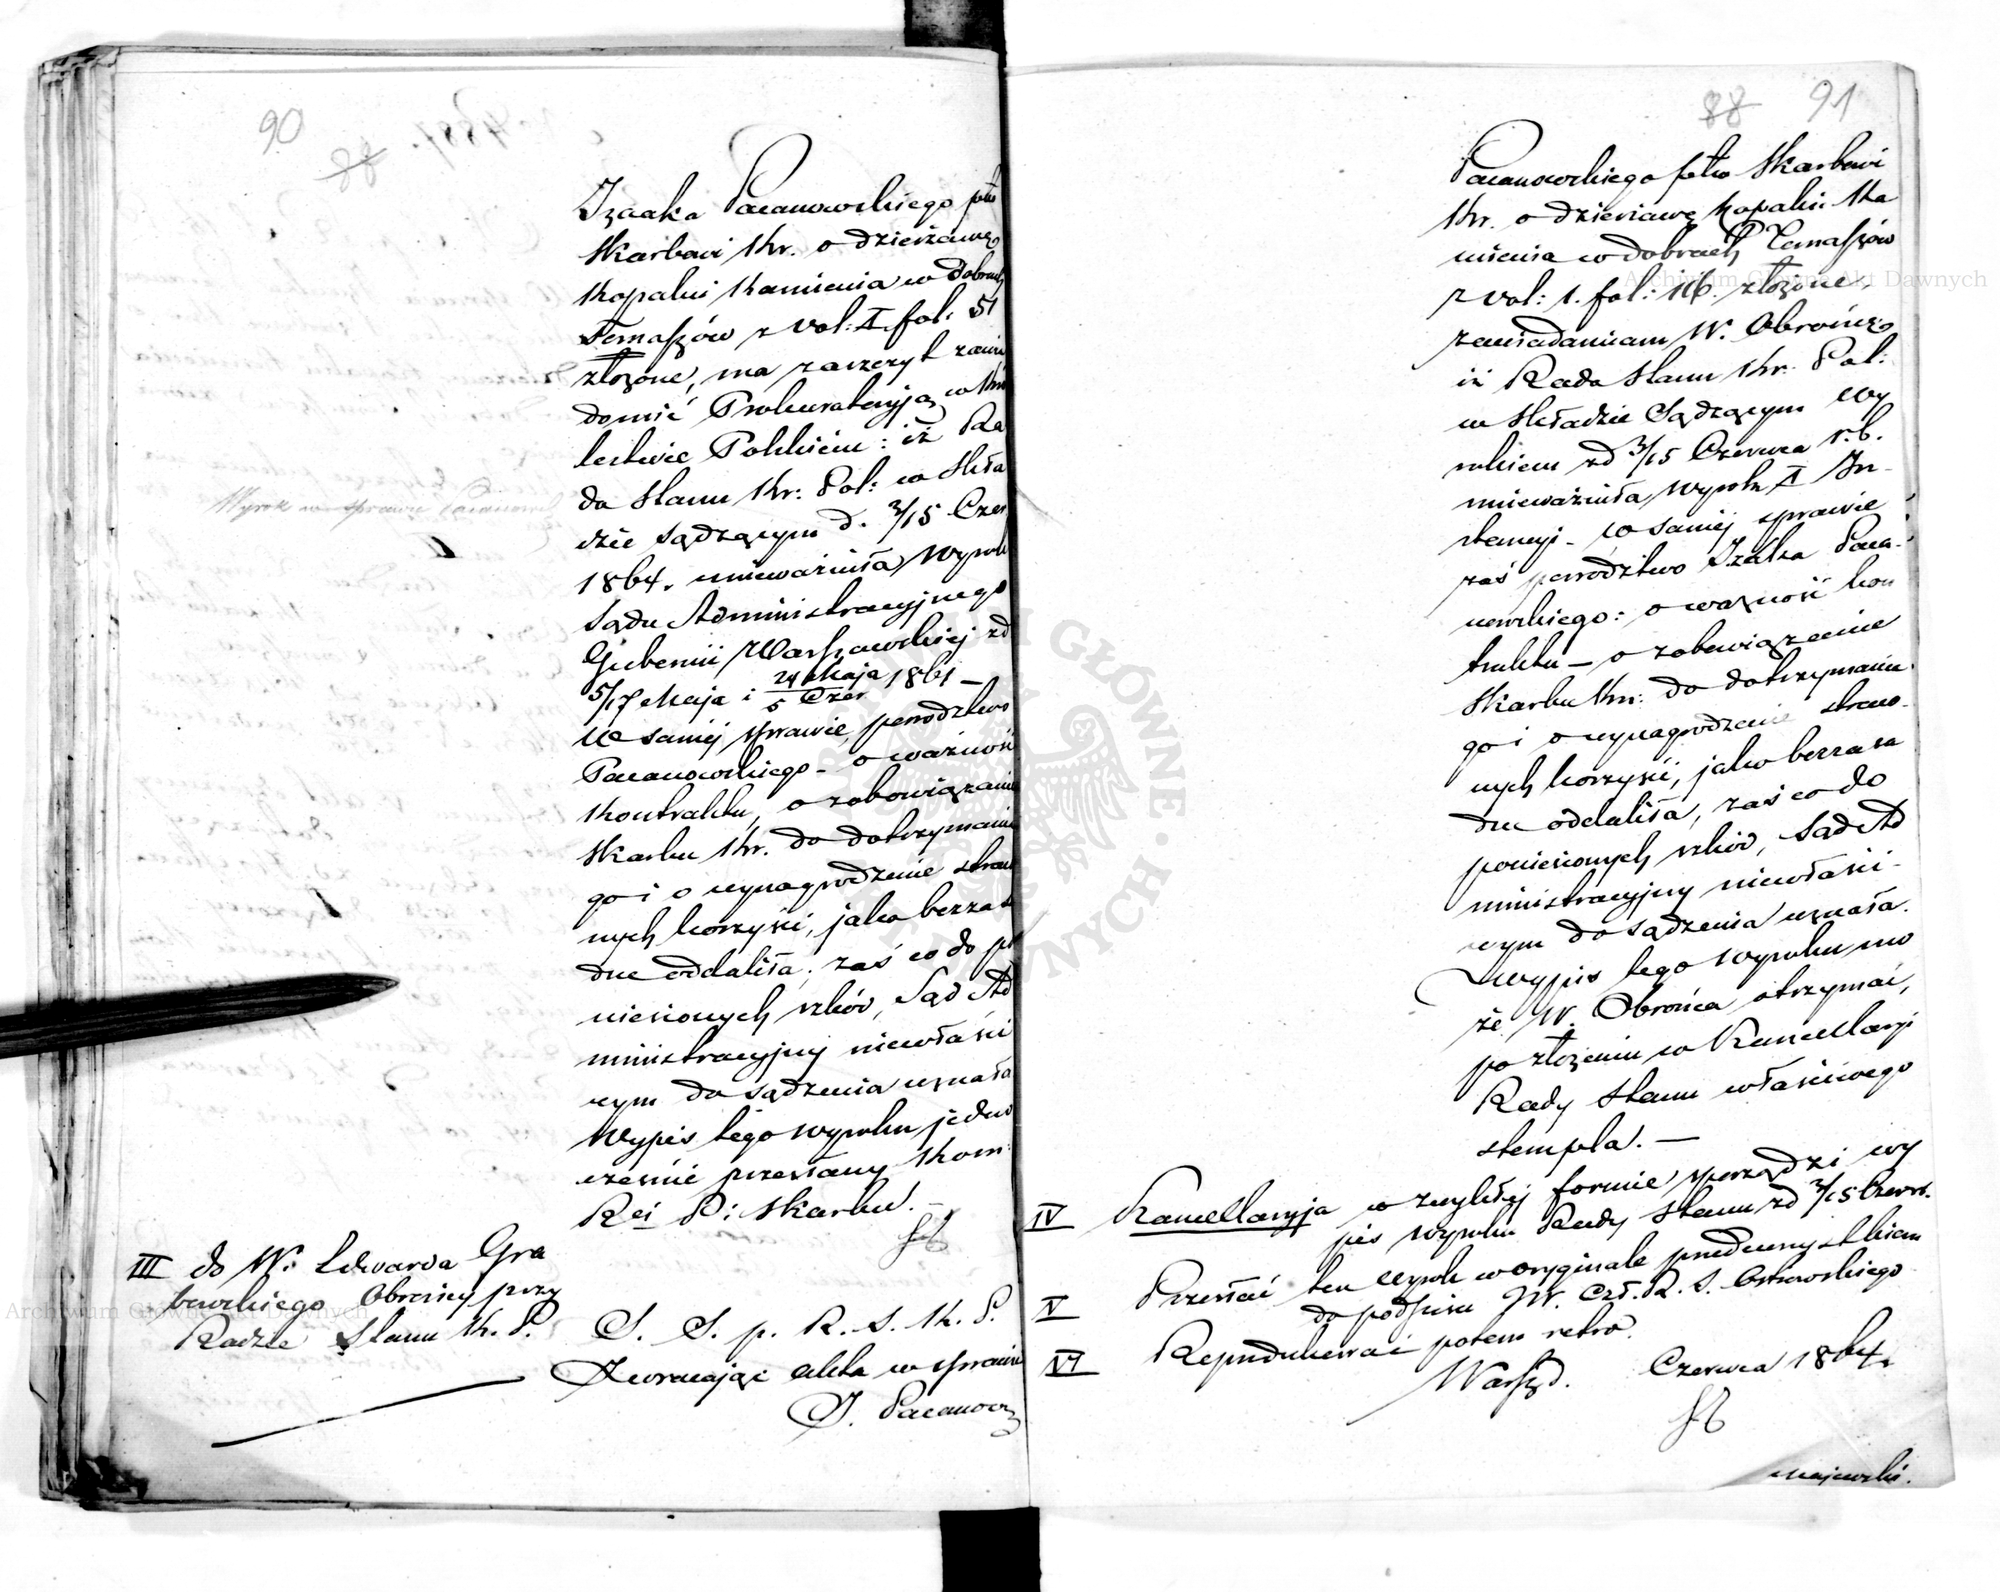 90
88
Izaaka Pacanowskiego ptko
Skarbowi Kr. o dzierżawę
Kopalni Kamienia w dobrach
Tomaszów z Vol: I. fol: 51
złożone, ma zaszczyt zawia
domić Prokuratoryją w Kró
lestwie Polskiem: iż Ra
da Stanu Kr: Pol: w Skła
dzie Sądzącym d. 3/15 Czer
1864. unieważniła Wyrok
Sądu Administracyjnego
Gubernii Warszawskiej zd
5/17 Maja i 24 Maja/5 Czer 1861 —
W samej sprawie, powództwo
Pacanowskiego – o ważność
Kontraktu, o zobowiązanie
Skarbu Kr. do dotrzymania
go i o wynagrodzenie straco
nych korzyści, jako bezzasa
dne oddaliła; zaś co do po
niesionych szkód, Sąd Ad
ministracyjny niewłaści
wym do sądzenia uznała
Wypis tego wyroku jedno
cześnie przesłany Kom:
Rei P: Skarbu. —
Wyrok w sprawie Pacanow
III do W. Edwarda Gra
bowskiego Obrońcy przy
Radzie Stanu K. P.
S. S. p. R. S. K. P.
Zwracając akta w sprawie
I. Pacanow
88 91
Pacanowskiego ptko Skarbowi
Kr. o dzierżawę Kopalni Ka
mienia w dobrach Tomaszów
z vol: 1. fol: 116. złożone,
zawiadamiam W. Obrońcę
iż Rada Stanu Kr. Pol:
w Składzie Sądzącym Wy
rokiem zd 3/15 Czerwca r.b.
unieważniła Wyrok I In-
stancyi – w samej sprawie
zaś powództwo Izaaka Paca-
nowskiego: o ważność kon
traktu — o zobowiązanie
Skarbu Kr: do dotrzymania
go i o wynagrodzenie straco-
nych korzyści, jako bezzasa
dne oddaliła, zaś co do
poniesionych szkód, Sąd Ad
ministracyjny niewłaści-
wym do sądzenia uznała.
Wypis tego Wyroku mo
że W. Obrońca otrzymać,
po złożeniu w Kancellaryi
Rady Stanu właściwego
stempla. —
IV Kancellaryja w zwykłej formie sporządzi wy
pis wyroku Rady Stanu zd 3/15 Czerw.
V Przesłać ten Wyrok w oryginale przedewszystkiem
do podpisu JW. Czł. R. S. Ostrowskiego
VI Reprodukować potem retro.
Warsz d. Czerwca 1864.
Majewski.
Archiwum Główne Akt Dawnych
Archiwum Główne Akt Dawnych
ARCHIWUM GŁÓWNE AKT DAWNYCH